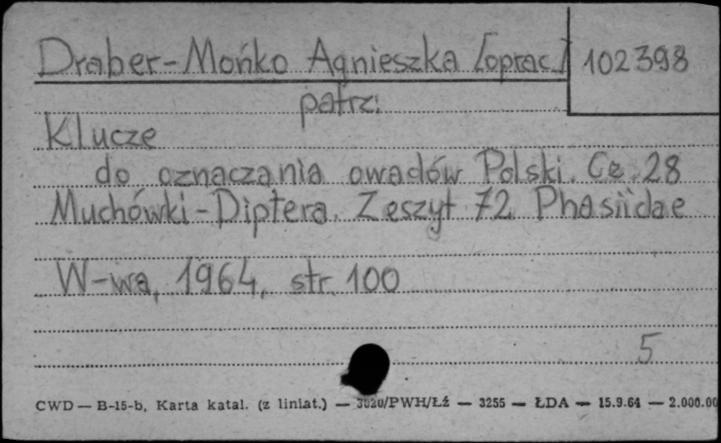 Draber-Mońko Agnieszka [oprac.] 102398
patrz:
Klucze
do oznaczania owadów Polski. Cz. 28
Muchówki-Diptera. Zeszyt 72 Phasiidae
W-wa, 1964, str. 100
5
CWD — B-15-b, Karta katal. (z liniat.) — 3020/PWH/Łź — 3255 — ŁDA — 15.9.64 — 2.000.00